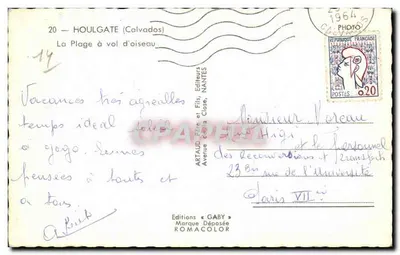 20 — HOULGATE (Calvados)
La Plage à vol d'oiseau
1964
PHOTO
REPUBLIQUE FRANÇAISE
POSTES
0,20
14
Vacances très agréables
temps idéal
a gogo.
pensées à toutes et
a tous
Monsieur Moreau
et le personnel
des et Transports
23 bis rue de l'Université
Paris VII
ARTAUD Père et Fils, Editeurs
Avenue Close, NANTES
Editions « GABY »
Marque Déposée
ROMACOLOR